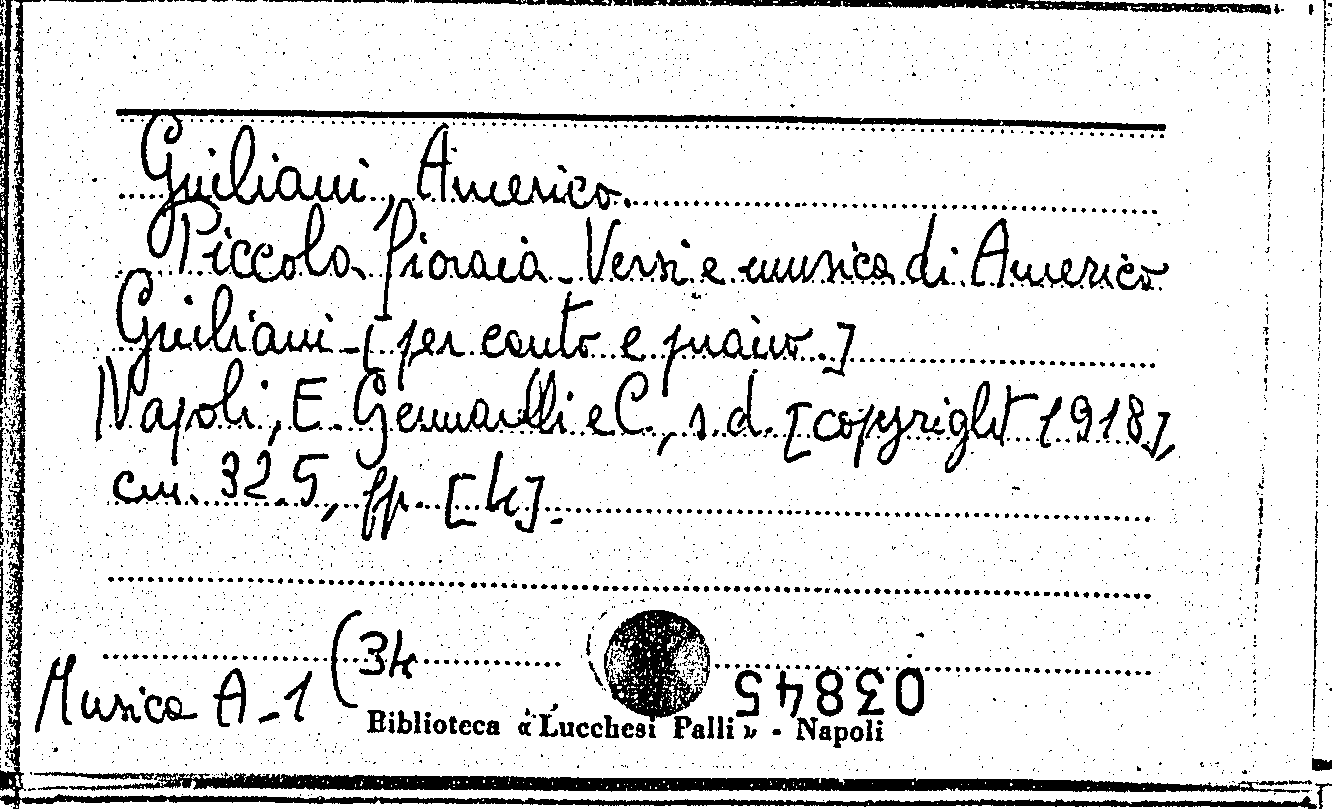 Giuliani, Americo.
Piccola fioraia - Versi e musica di Americo
Giuliani - [per canto e piano.]
Napoli, E. Gennarelli e C., s.d. [copyright 1918],
cm. 32.5, pp. [4].
(34
Musica A-1
03845
Biblioteca «Lucchesi Palli» - Napoli